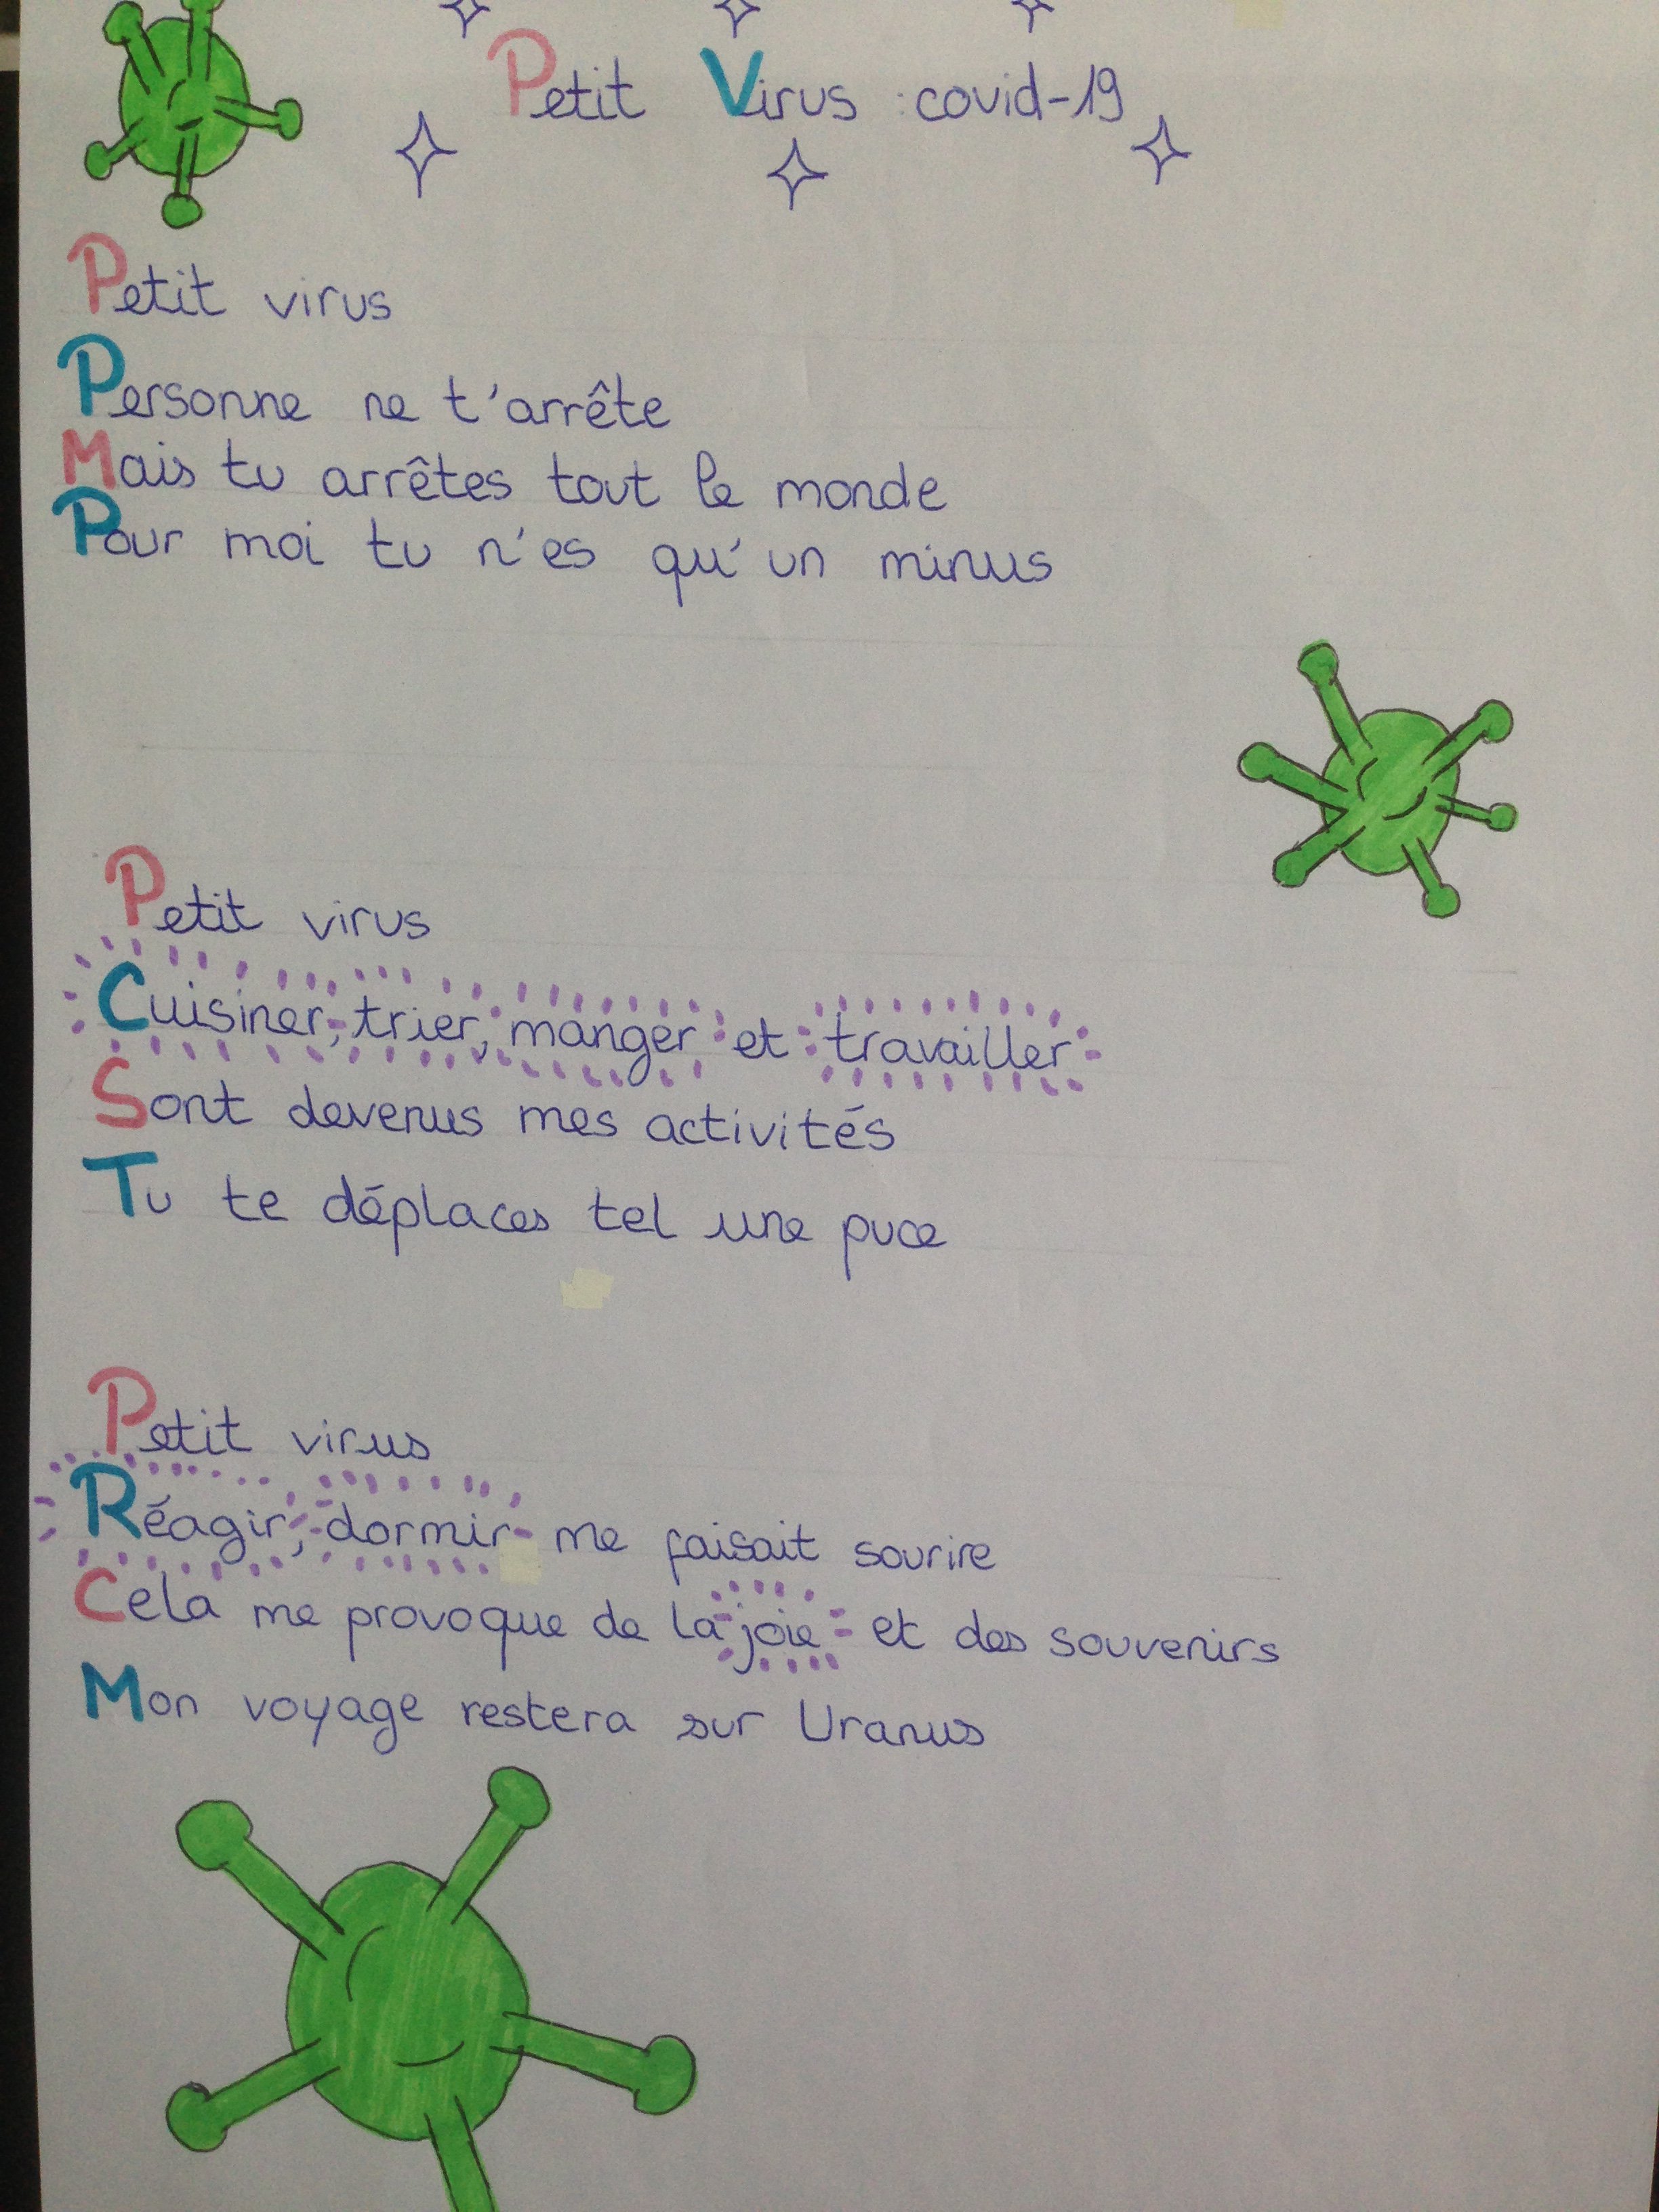 Petit Virus : covid-19
Petit virus
Personne ne t'arrête
Mais tu arrêtes tout le monde
Pour moi tu n'es qu'un minus
Petit virus
Cuisiner, trier, manger et travailler
Sont devenus mes activités
Tu te déplaces tel une puce
Petit virus
Réagir, dormir me faisait sourire
Cela me provoque de la joie et des souvenirs
Mon voyage restera sur Uranus